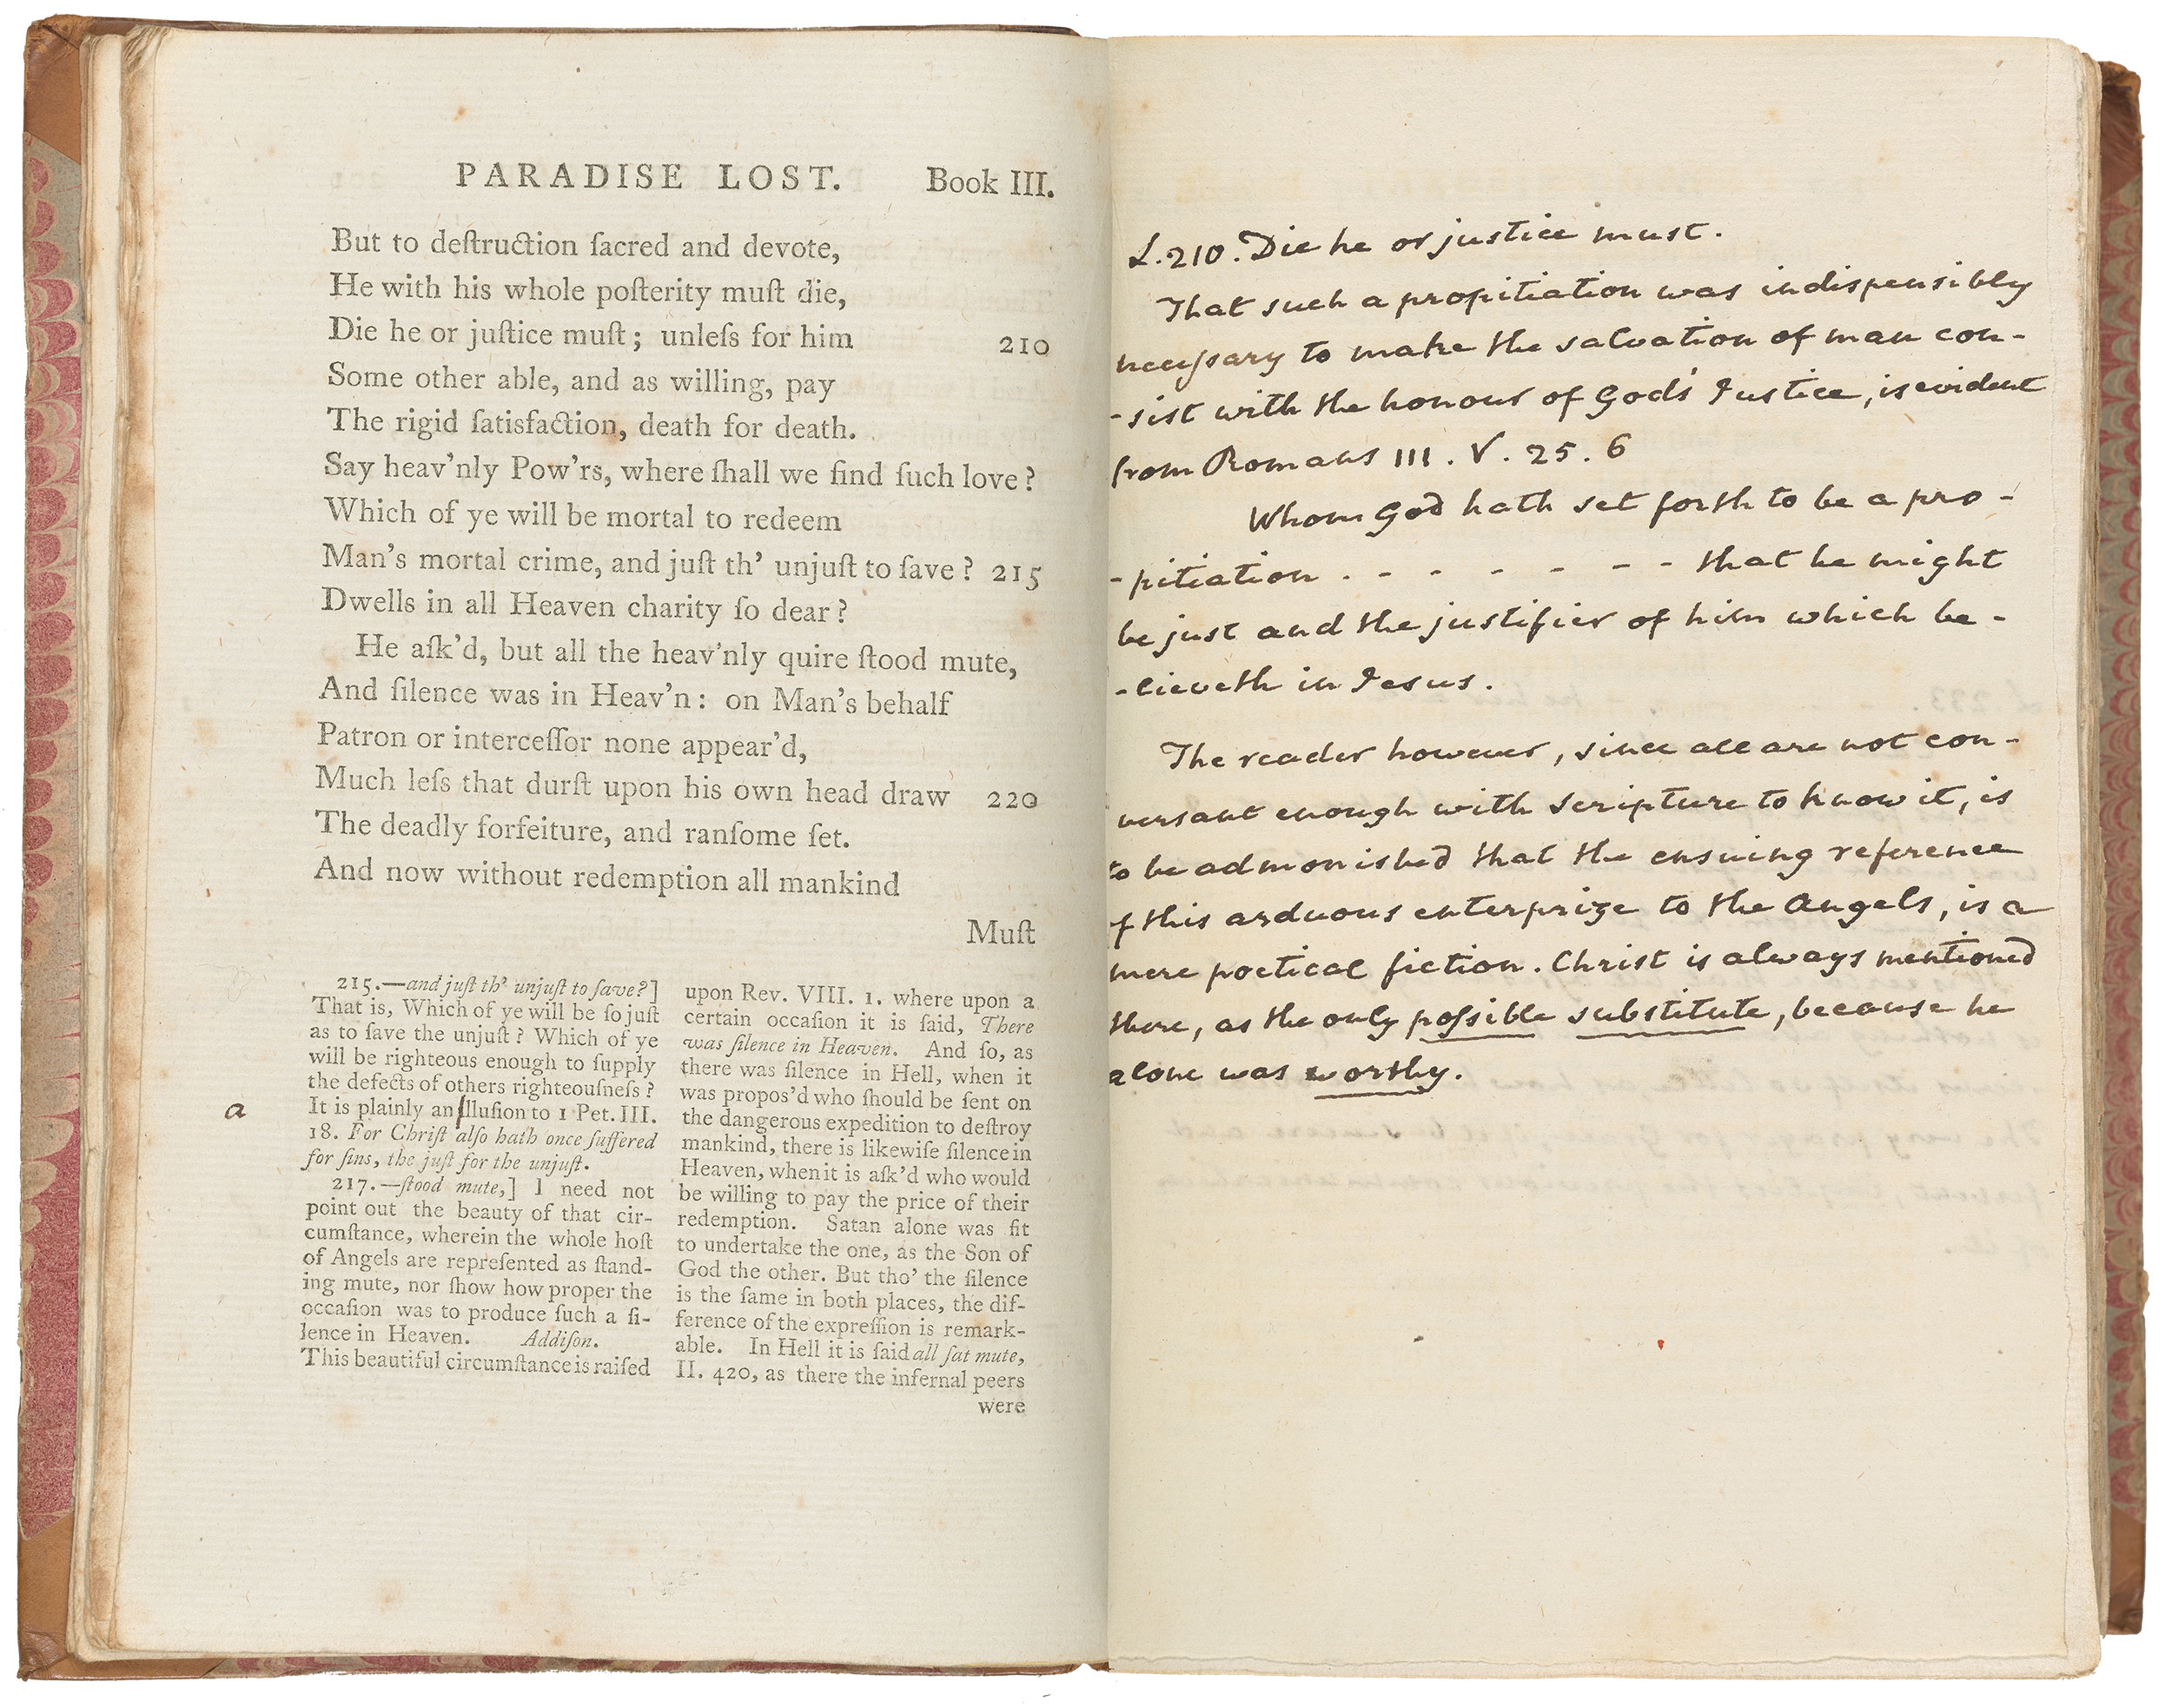 PARADISE LOST. Book III.
But to deſtruction ſacred and devote,
He with his whole poſterity muſt die,
Die he or juſtice muſt; unleſs for him 210
Some other able, and as willing, pay
The rigid ſatisfaction, death for death.
Say heav'nly Pow'rs, where ſhall we find ſuch love?
Which of ye will be mortal to redeem
Man's mortal crime, and juſt th' unjuſt to ſave? 215
Dwells in all Heaven charity ſo dear?
He aſk'd, but all the heav'nly quire ſtood mute,
And ſilence was in Heav'n: on Man's behalf
Patron or interceſſor none appear'd,
Much leſs that durſt upon his own head draw 220
The deadly forfeiture, and ranſome ſet.
And now without redemption all mankind
Muſt
215.—and juſt th' unjuſt to ſave?]
That is, Which of ye will be ſo juſt
as to ſave the unjuſt? Which of ye
will be righteous enough to ſupply
the defects of others righteouſneſs?
a It is plainly an illuſion to 1 Pet. III.
18. For Chriſt alſo hath once ſuffered
for ſins, the juſt for the unjuſt.
217.—ſtood mute,] I need not
point out the beauty of that cir-
cumſtance, wherein the whole hoſt
of Angels are repreſented as ſtand-
ing mute, nor ſhow how proper the
occaſion was to produce ſuch a ſi-
lence in Heaven. Addiſon.
This beautiful circumſtance is raiſed
upon Rev. VIII. 1. where upon a
certain occaſion it is ſaid, There
was ſilence in Heaven. And ſo, as
there was ſilence in Hell, when it
was propos'd who ſhould be ſent on
the dangerous expedition to deſtroy
mankind, there is likewiſe ſilence in
Heaven, when it is aſk'd who would
be willing to pay the price of their
redemption. Satan alone was fit
to undertake the one, as the Son of
God the other. But tho' the ſilence
is the ſame in both places, the dif-
ference of the expreſſion is remark-
able. In Hell it is ſaid all ſat mute,
II. 420, as there the infernal peers
were
L. 210. Die he or justice must.
That such a propitiation was indispensibly
neceſsary to make the salvation of man con-
-sist with the honour of God's Justice, is evident
from Romans III. V. 25. 6
Whom God hath set forth to be a pro-
-pitiation . - - - - - - that he might
be just and the justifier of him which be-
-lieveth in Jesus.
The reader however, since all are not con-
versant enough with Scripture to know it, is
to be admonished that the ensuing reference
of this arduous enterprize to the Angels, is a
mere poetical fiction. Christ is always mentioned
there, as the only poſsible substitute, because he
alone was worthy.